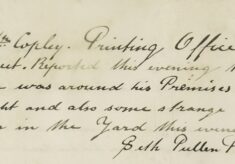 th Copley. Printing Office
eet. Reported this evening t
e was around his Premises
ht and also some strange
n in the Yard this even
Seth Pullen P